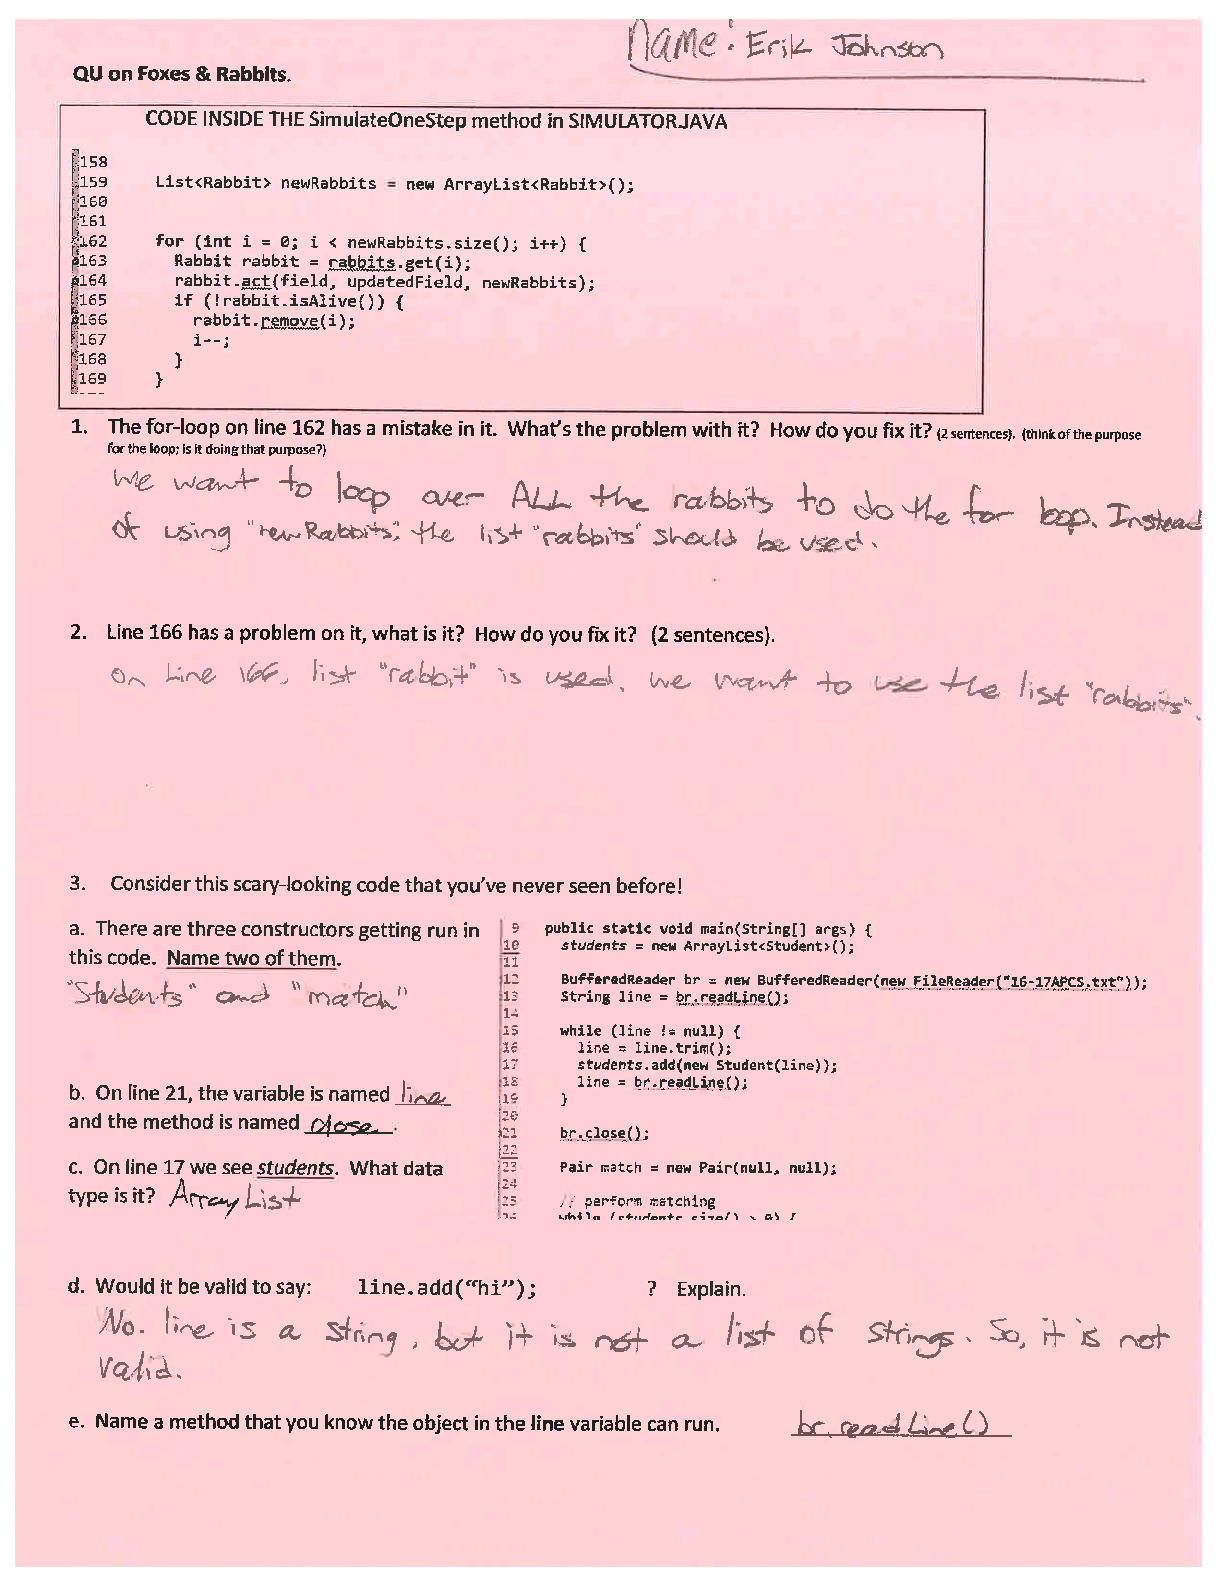 Name: Erik Johnson
QU on Foxes & Rabbits.
CODE INSIDE THE SimulateOneStep method in SIMULATOR.JAVA
158
159 List<Rabbit> newRabbits = new ArrayList<Rabbit>();
160
161
162 for (int i = 0; i < newRabbits.size(); i++) {
163 Rabbit rabbit = rabbits.get(i);
164 rabbit.act(field, updatedField, newRabbits);
165 if (!rabbit.isAlive()) {
166 rabbit.remove(i);
167 i--;
168 }
169 }
1. The for-loop on line 162 has a mistake in it. What's the problem with it? How do you fix it? (2 sentences). (think of the purpose
for the loop; is it doing that purpose?)
We want to loop over ALL the rabbits to do the for loop. Instead
of using "newRabbits", the list "rabbits" should be used.
2. Line 166 has a problem on it, what is it? How do you fix it? (2 sentences).
On Line 166, list "rabbit" is used. We want to use the list "rabbits".
3. Consider this scary-looking code that you've never seen before!
a. There are three constructors getting run in
this code. Name two of them.
"Students" and "match"
b. On line 21, the variable is named line
and the method is named close.
c. On line 17 we see students. What data
type is it? ArrayList
9 public static void main(String[] args) {
10 students = new ArrayList<Student>();
11
12 BufferedReader br = new BufferedReader(new FileReader("16-17APCS.txt"));
13 String line = br.readLine();
14
15 while (line != null) {
16 line = line.trim();
17 students.add(new Student(line));
18 line = br.readLine();
19 }
20
21 br.close();
22
23 Pair match = new Pair(null, null);
24
25 // perform matching
26 while (students.size() > 0) {
d. Would it be valid to say: line.add("hi"); ? Explain.
No. line is a string, but it is not a list of strings. So, it is not
valid.
e. Name a method that you know the object in the line variable can run. br.readLine()